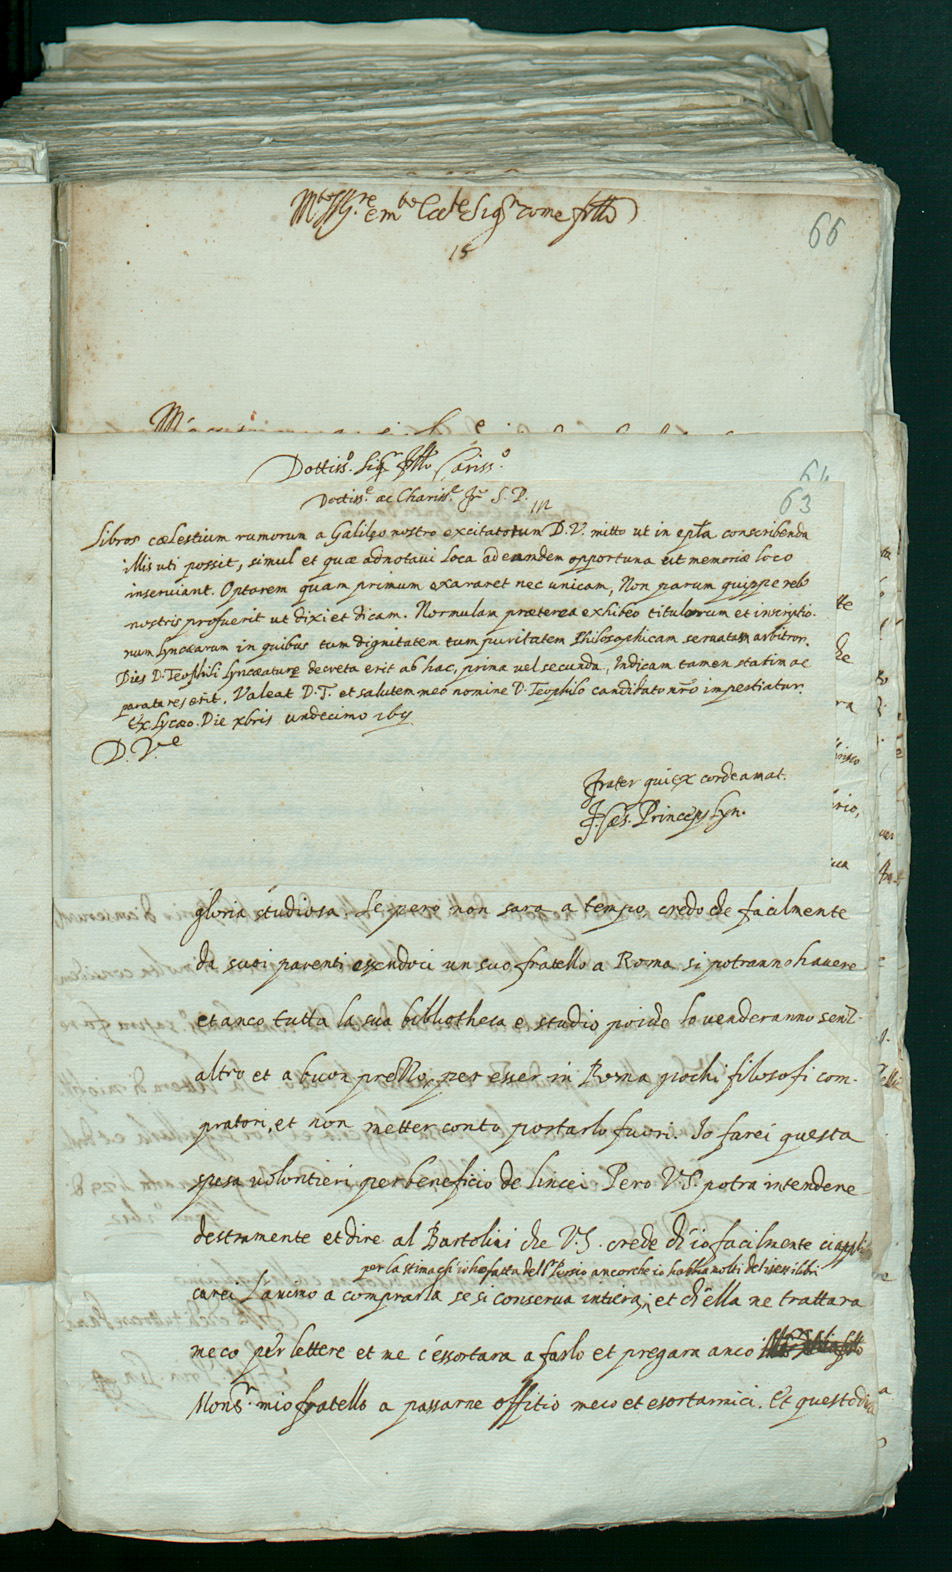 66
15
64
Dottiss.º Sig.r fr̃llo Cariss.º
63
Doctiss.e ac Chariss.e fr̃. S. P.
Libros cælestium rumorum a Galileo nostro excitatorum D. V. mitto ut in ep̃la conscribenda
illis uti possit, simul et quæ adnotavi loca ad eamdem opportuna ut memoriæ loco
inserviant. Optarem quam primum exararet nec unicam, Non parum quippe reb.
nostris profuerit ut dixi et dicam. Normulam præterea exhibeo titulorum et inscriptio-
num lynceorum in quibus tum dignitatem tum puritatem Philosophicam servatam arbitror.
Dies D. Teophili lynceaturę decreta erit ab hac, prima vel secunda, Indicam tamen statim ac
parata res erit. Valeat D. T. et salutem meo nomine D. Teophilo candidato nr̃o impertiatur.
Ex lycæo. Die xbris undecimo 1611
D. V.æ
Frater qui ex corde amat.
F. Cæs. Princeps Lyn.
gloria studiosa. Se però non sara a tempo credo che facilmente
da suoi parenti essendoci un suo fratello a Roma si potranno havere
et anco tutta la sua bibliotheca e studio poiche lo venderanno senz-
altro et a buon prezzo, per esser in Roma pochi filosofi com-
pratori, et non metter conto portarlo fuori. Io farei questa
spesa volontieri per beneficio de lincei Pero V. S. potra intendere
destramente et dire al Bartolini che V. S. crede ch'io facilmente ci appli
per la stima ch'io ho fatta del S.r Persio ancorche io habbia molti de li stessi libri
carei l'animo a comprarla se si conserva intiera, et ch'ella ne trattara
meco per lettere et me c'essortara a farlo et pregara anco
Mons.r mio fratello a passarne offitio meco et esortarmici. Et questo dica